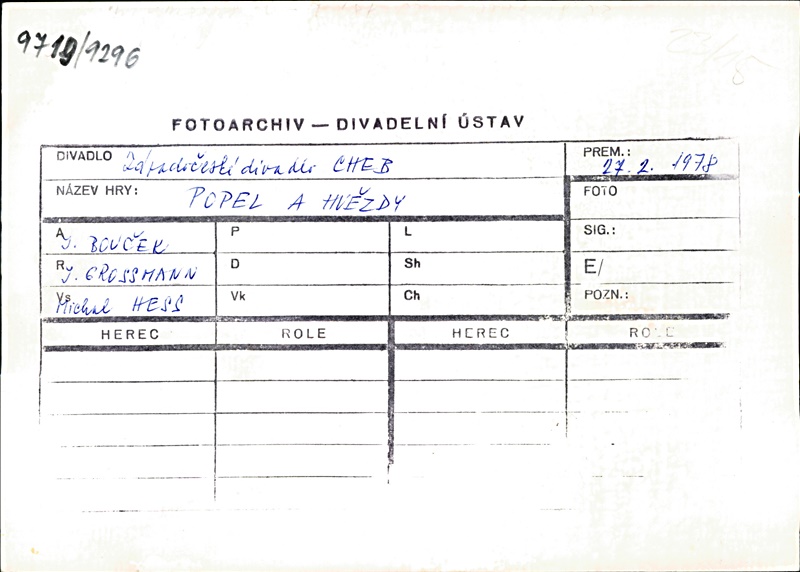 9719/9296
FOTOARCHIV — DIVADELNÍ ÚSTAV
DIVADLO Západočeské divadlo CHEB
PREM.: 27. 2. 1978
NÁZEV HRY: POPEL A HVĚZDY
FOTO
A J. BOUČEK
P
L
SIG.:
R J. GROSSMANN
D
Sh
E/
Vs Michal HESS
Vk
Ch
POZN.:
HEREC ROLE HEREC ROLE